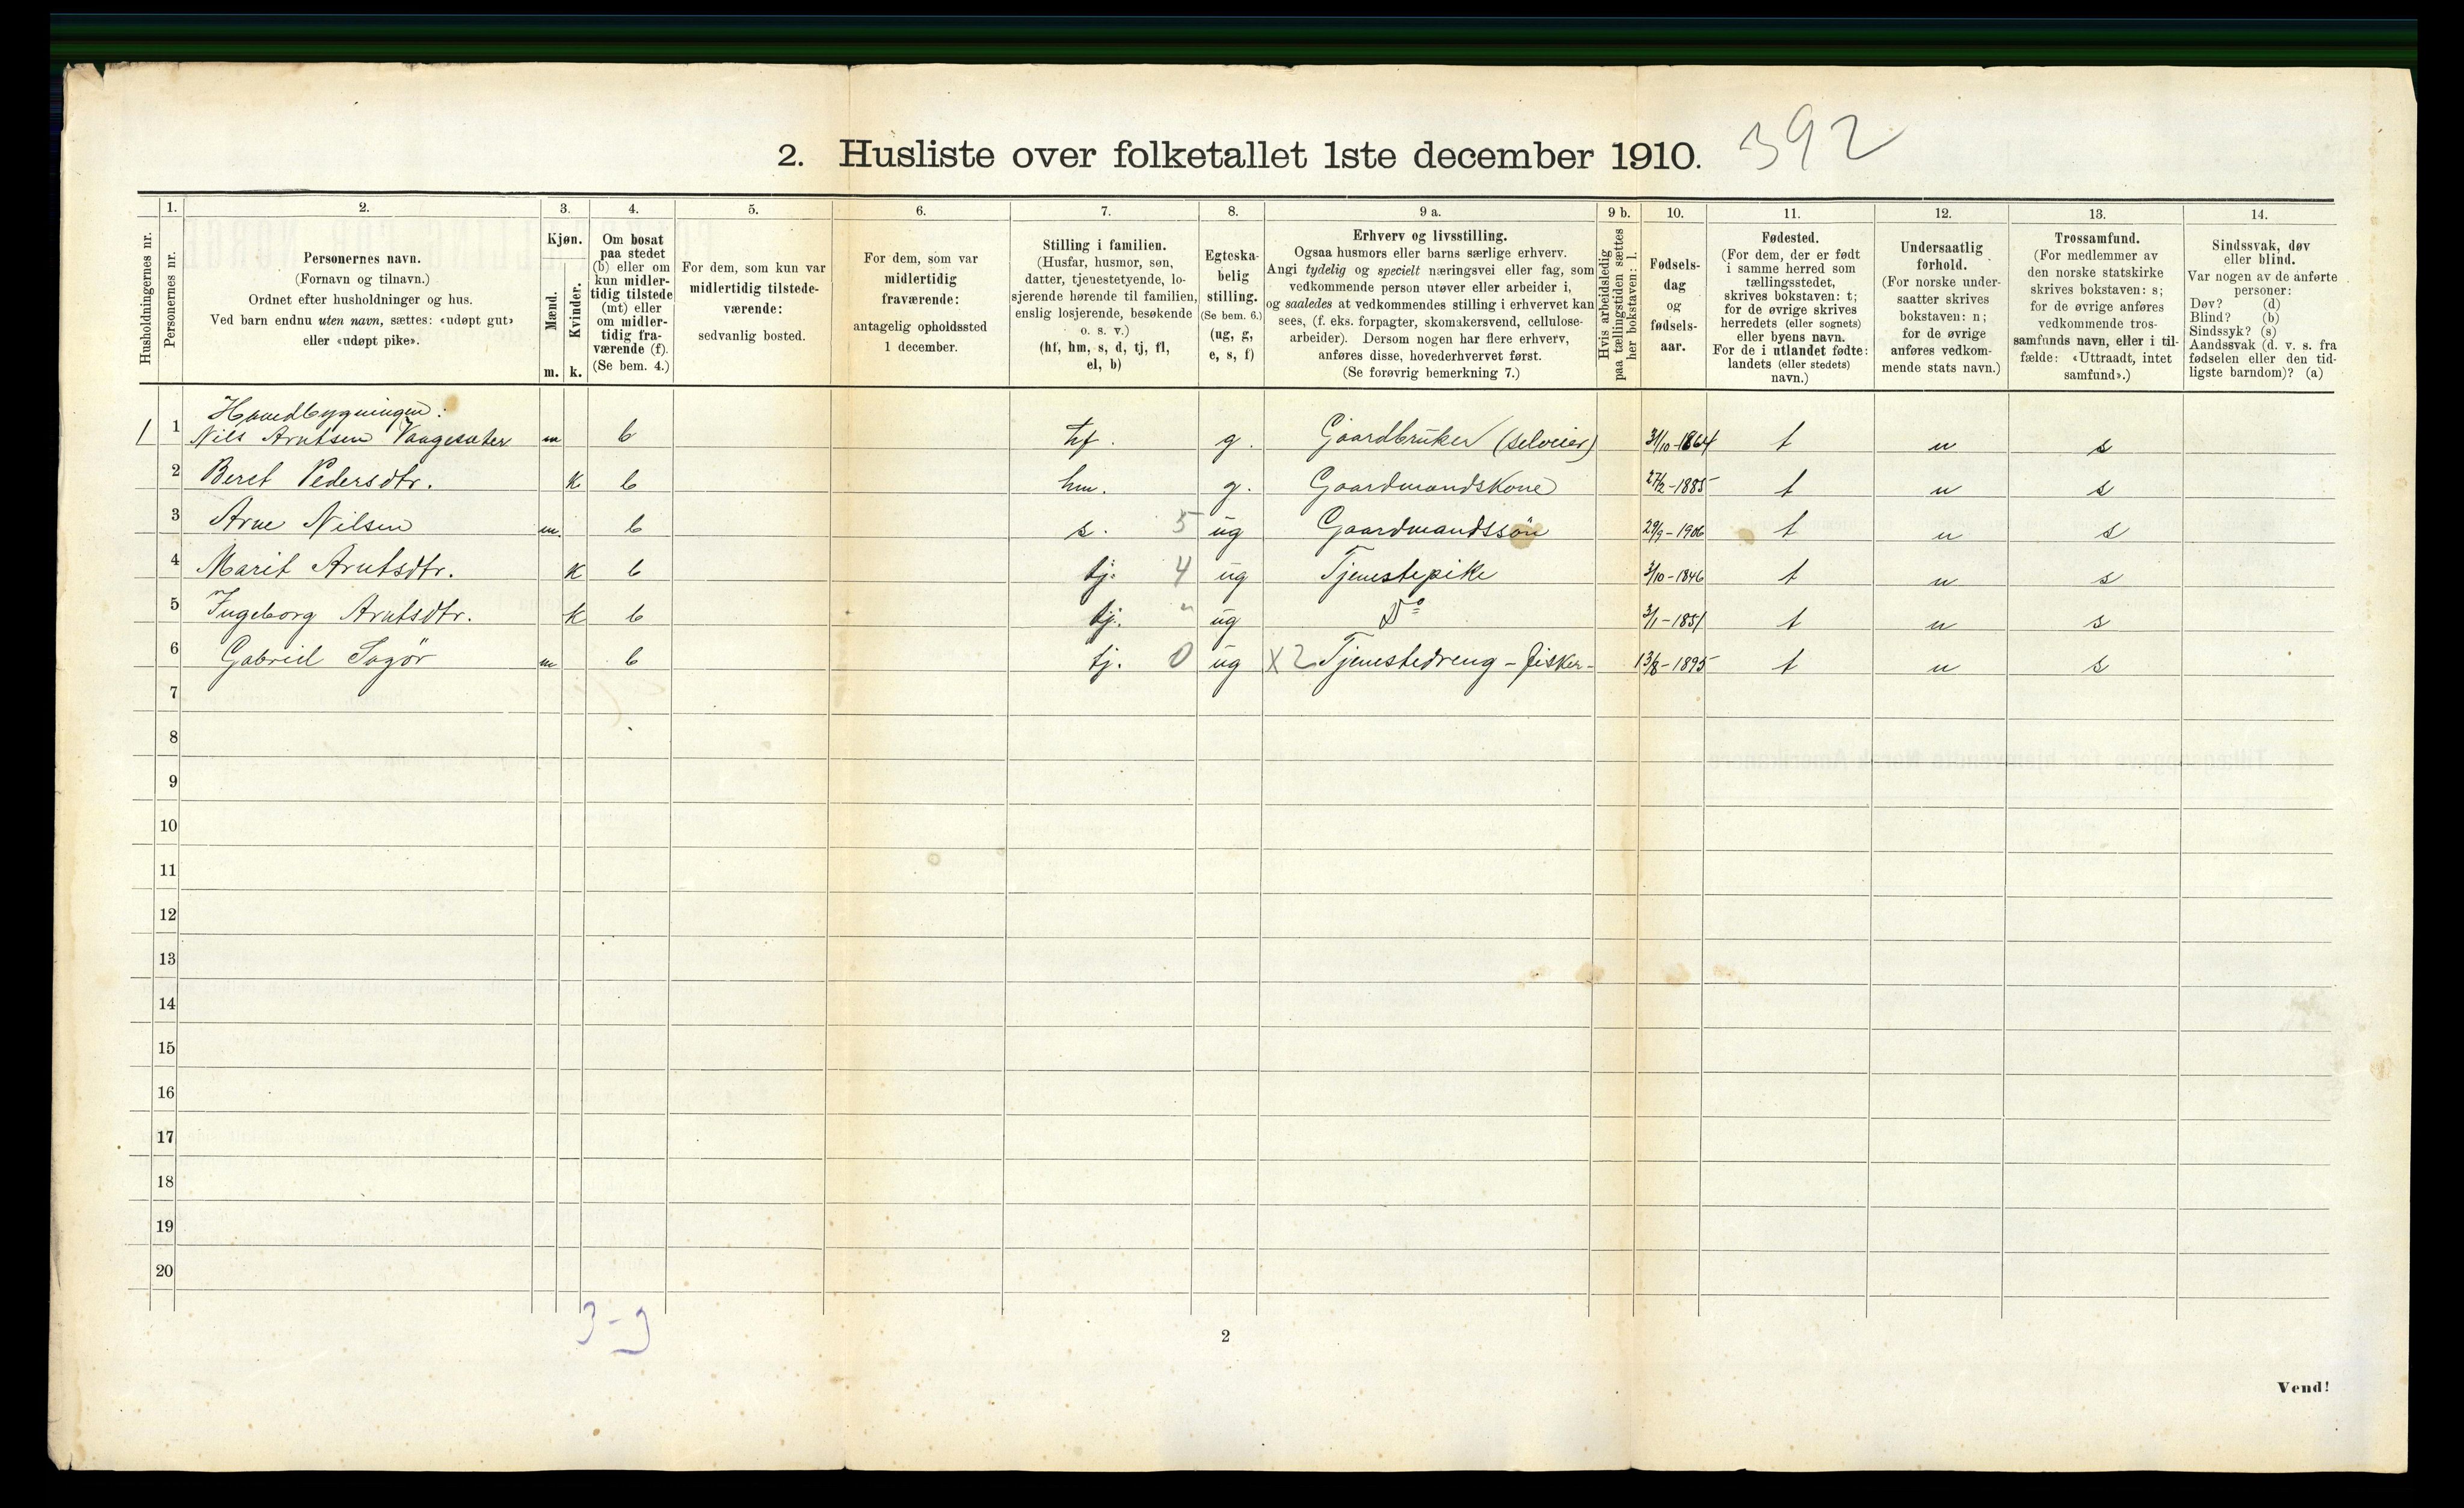 392
2. Husliste over folketallet 1ste december 1910.
Husholdningernes nr.
1.
Personernes nr.
2.
Personernes navn.
(Fornavn og tilnavn.)
Ordnet efter husholdninger og hus.
Ved barn endnu uten navn, sættes: «udøpt gut»
eller «udøpt pike».
3.
Kjøn.
Mænd.
Kvinder.
m. k.
4.
Om bosat
paa stedet
(b) eller om
kun midler-
tidig tilstede
(mt) eller
om midler-
tidig fra-
værende (f).
(Se bem. 4.)
5.
For dem, som kun var
midlertidig tilstede-
værende:
sedvanlig bosted.
6.
For dem, som var
midlertidig
fraværende:
antagelig opholdssted
1 december.
7.
Stilling i familien.
(Husfar, husmor, søn,
datter, tjenestetyende, lo-
sjerende hørende til familien,
enslig losjerende, besøkende
o. s. v.)
(hf, hm, s, d, tj, fl,
el, b)
8.
Egteska-
belig
stilling.
(Se bem. 6.)
(ug, g,
e, s, f)
9 a.
Erhverv og livsstilling.
Ogsaa husmors eller barns særlige erhverv.
Angi tydelig og specielt næringsvei eller fag, som
vedkommende person utøver eller arbeider i,
og saaledes at vedkommendes stilling i erhvervet kan
sees, (f. eks. forpagter, skomakersvend, cellulose-
arbeider). Dersom nogen har flere erhverv,
anføres disse, hovederhvervet først.
(Se forøvrig bemerkning 7.)
9 b.
Hvis arbeidsledig
paa tællingstiden sættes
her bokstaven: l.
10.
Fødsels-
dag
og
fødsels-
aar.
11.
Fødested.
(For dem, der er født
i samme herred som
tællingsstedet,
skrives bokstaven: t;
for de øvrige skrives
herredets (eller sognets)
eller byens navn.
For de i utlandet fødte:
landets (eller stedets)
navn.)
12.
Undersaatlig
forhold.
(For norske under-
saatter skrives
bokstaven: n;
for de øvrige
anføres vedkom-
mende stats navn.)
13.
Trossamfund.
(For medlemmer av
den norske statskirke
skrives bokstaven: s;
for de øvrige anføres
vedkommende tros-
samfunds navn, eller i til-
fælde: «Uttraadt, intet
samfund».)
14.
Sindssvak, døv
eller blind.
Var nogen av de anførte
personer:
Døv? (d)
Blind? (b)
Sindssyk? (s)
Aandssvak (d. v. s. fra
fødselen eller den tid-
ligste barndom)? (a)
Hovedbygningen:
1 1 Nils Arntsen Vaagesæter m b hf. g. Gaardbruker (selveier) 31/10-1864 t n s
2 Beret Pedersdtr. k b hm. g. Gaardmandskone 27/2-1885 t n s
3 Arne Nilsen m. b s. 5 ug Gaardmandssön 29/9-1906 t n s
4 Marit Arntsdtr. k b tj. 4 ug Tjenestepike 3/10-1846 t n s
5 Ingeborg Arntsdtr. k b tj. " ug Do 3/1-1851 t n s
6 Gabriel Sagör m b tj. 0 ug X2 Tjenestedreng - fisker- 13/8-1895 t n s
7
8
9
10
11
12
13
14
15
16
17
18
19
20
3-9
2
Vend!